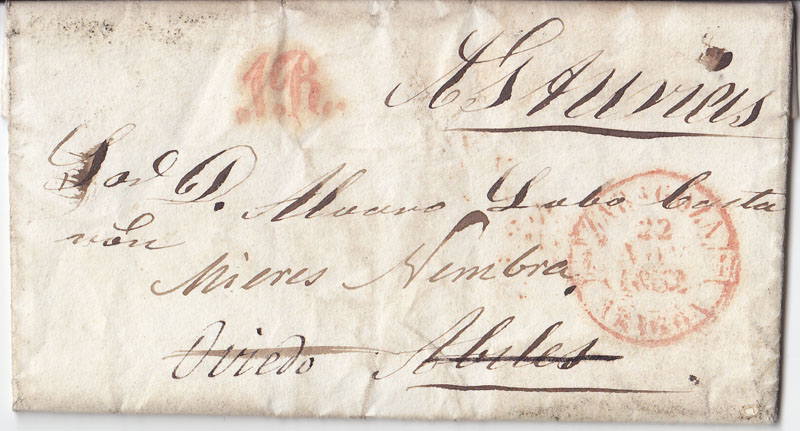 1R.
Asturias
Sor D. Alvaro Lobo Casta
ñon
Mieres Nembra
Oviedo Abiles
ZARAGOZA
22
1853